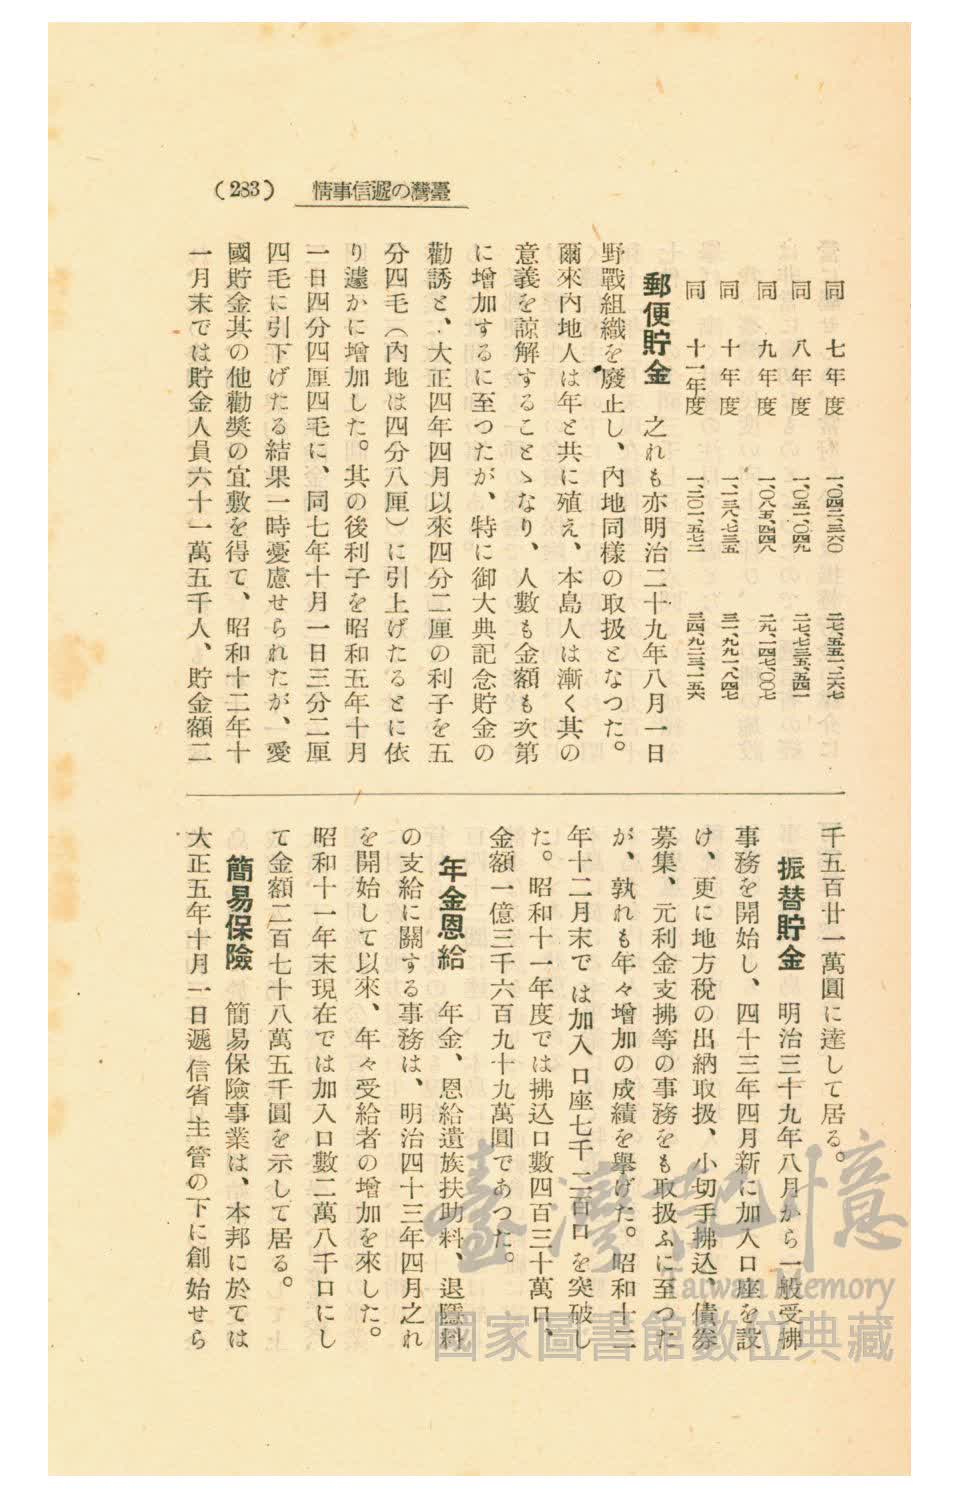 (283) 情事信遞の灣臺
同 七年度 一、〇四二、三六〇 二七、五五一、二六七
同 八年度 一、〇五一、〇四九 二七、七三五、五四一
同 九年度 一、〇八五、四四八 二九、一四七、〇〇七
同 十年度 一、一三八、七三五 三一、九九一、八四七
同 十一年度 一、二〇一、五七二 三四、九二三、一五六
郵便貯金 之れも亦明治二十九年八月一日
野戰組織を廢止し、內地同樣の取扱となつた。
爾來內地人は年と共に殖え、本島人は漸く其の
意義を諒解することゝなり、人數も金額も次第
に增加するに至つたが、特に御大典記念貯金の
勸誘と、大正四年四月以來四分二厘の利子を五
分四毛（內地は四分八厘）に引上げたるとに依
り遽かに增加した。其の後利子を昭和五年十月
一日四分四厘四毛に、同七年十月一日三分二厘
四毛に引下げたる結果一時憂慮せられたが、愛
國貯金其の他勸奬の宜敷を得て、昭和十二年十
一月末では貯金人員六十一萬五千人、貯金額二
千五百廿一萬圓に達して居る。
振替貯金 明治三十九年八月から一般受拂
事務を開始し、四十三年四月新に加入口座を設
け、更に地方稅の出納取扱、小切手拂込、債券
募集、元利金支拂等の事務をも取扱ふに至つた
が、孰れも年々增加の成績を擧げた。昭和十二
年十二月末では加入口座七千二百口を突破し
た。昭和十一年度では拂込口數四百三十萬口、
金額一億三千六百九十九萬圓であつた。
年金恩給 年金、恩給遺族扶助料、退隱料
の支給に關する事務は、明治四十三年四月之れ
を開始して以來、年々受給者の增加を來した。
昭和十一年末現在では加入口數二萬八千口にし
て金額二百七十八萬五千圓を示して居る。
簡易保險 簡易保險事業は、本邦に於ては
大正五年十月一日遞信省主管の下に創始せら
臺灣記憶
Taiwan Memory
國家圖書館數位典藏